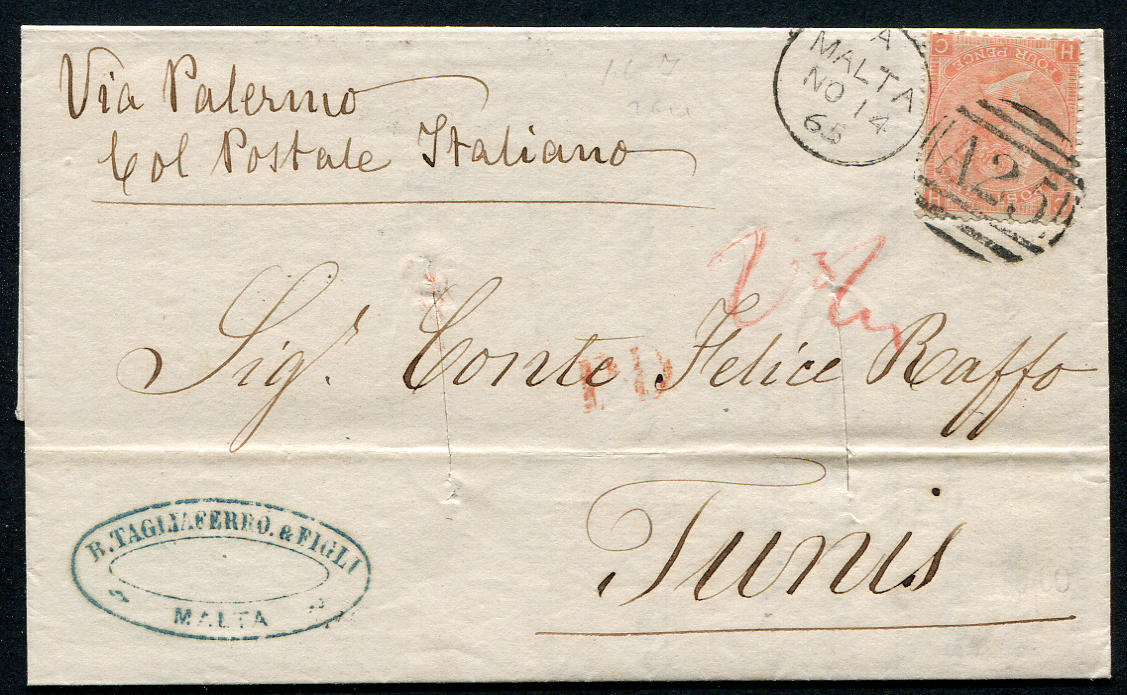 Via Palermo
Col Postale Italiano
A
MALTA
NO 14
65
H C
FOUR PENCE
POSTAGE
C H
A25
PD
Sigr. Conte Felice Raffo
Tunis
R. TAGLIAFERRO. & FIGLI
MALTA